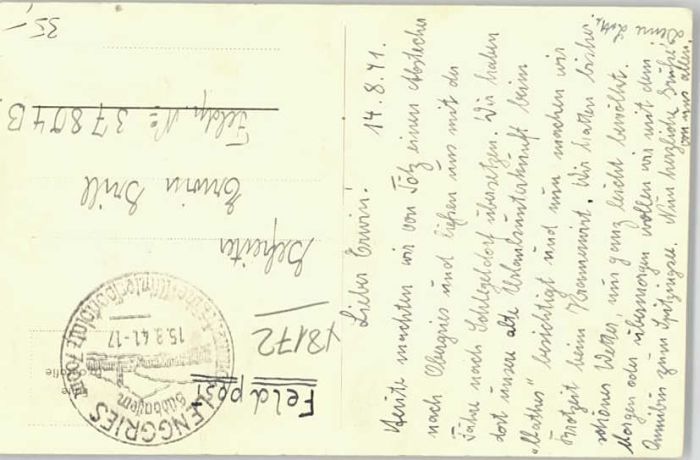 14.8.41.
Lieber Erwin.
Heute machten wir von Tölz einen Abstecher
nach Obergries und ließen uns mit der
Fähre nach Schlegldorf übersetzen. Wir haben
dort unsere alte Urlaubsunterkunft beim
besichtigt und nun machen wir
Brotzeit beim Kramerwirt. Wir hatten bisher
schönes Wetter, nur ganz leicht bewölkt.
Morgen oder übermorgen wollen wir mit dem
Omnibus zum Spitzingsee. Nun herzliche Grüße
von uns allen.
Deine
Feldpost
48172
Gefreiter
Erwin Brill
Feldp. No 37804B
35,-
LENGGRIES
Südbayern
15.8.41-17